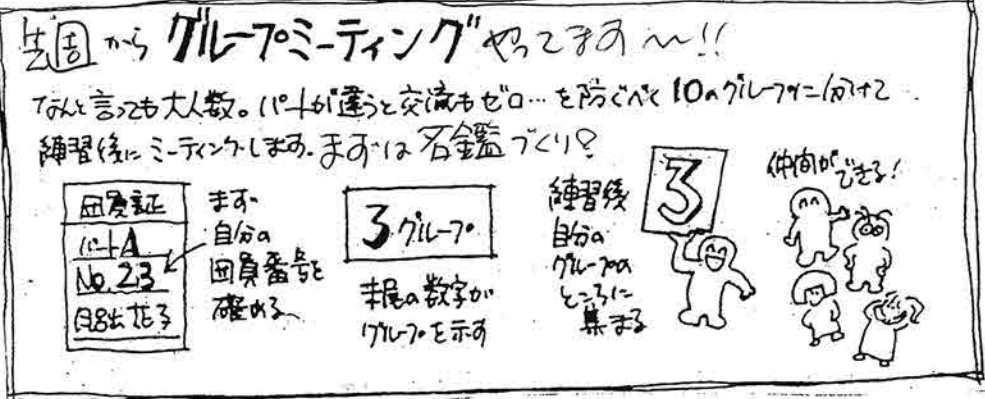 先週からグループミーティングやってます〜!!
なんと言っても大人数。パートが違うと交流もゼロ…を防ぐべく10のグループに分けて
練習後にミーティングします。まずは名鑑づくり？
団員証
パートA
No.23
日出花子
まず
自分の
団員番号を
確める
3グループ
末尾の数字が
グループを示す
練習後
自分の
グループの
ところに
集まる
3
仲間が
できる!